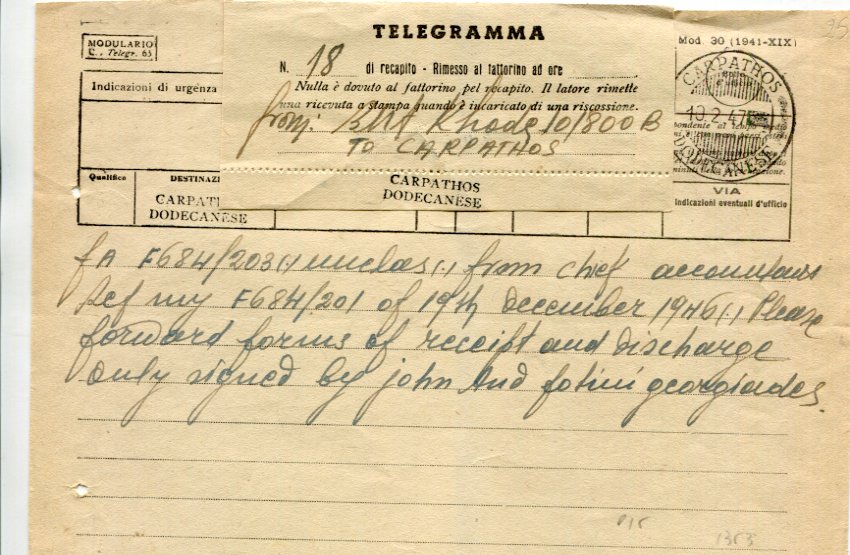 TELEGRAMMA
MODULARIO
C. Telegr. 63
Mod. 30 (1941-XIX)
25
N. 18 di recapito - Rimesso al fattorino ad ore
Indicazioni di urgenza
Nulla è dovuto al fattorino pel recapito. Il latore rimette
una ricevuta a stampa quando è incaricato di una riscossione.
from: BMA Rhodes 10/800 B
TO CARPATHOS
CARPATHOS
10.2.47
DODECANESE
Qualifica DESTINAZI
CARPATH
DODECANESE
CARPATHOS
DODECANESE
VIA
Indicazioni eventuali d'ufficio
FA F684/203(.) unclas(.) from chief accountant
Ref my F684/201 of 19th December 1946(.) Please
forward forms of receipt and discharge
duly signed by john and fotini georgiades.
1353